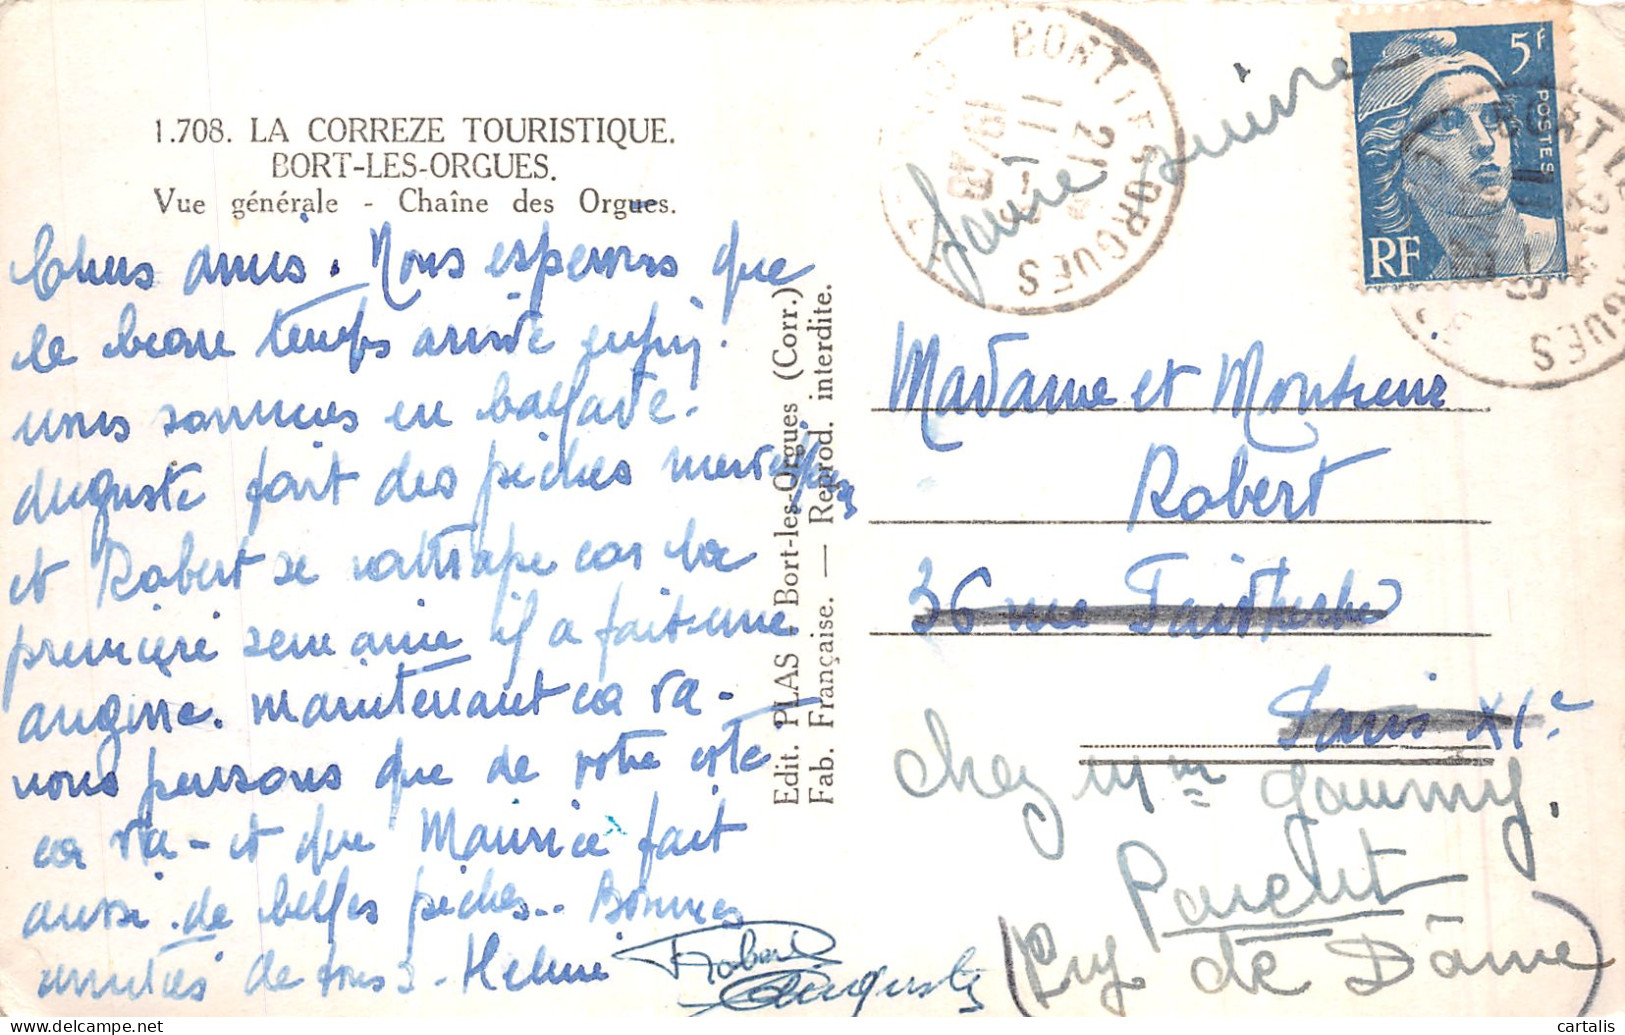 1.708. LA CORREZE TOURISTIQUE.
BORT-LES-ORGUES.
Vue générale - Chaîne des Orgues.
Chers amis. Nous esperons que
le beau temps arrive enfin.
nous sommes en balade.
Auguste fait des pêches merveilleuses
et Robert se rattrape car la
première semaine il a fait une
angine. maintenant ca va -
nous pensons que de votre côté
ca va - et que Maurice fait
aussi de belles pêches -- Bonnes
amitiés de tous 3 - Hélène Robert
Auguste
Edit. PLAS Bort-les-Orgues (Corr.)
Fab. Française. — Reprod. interdite.
BORT LES ORGUES
21
faire suivre
5F
POSTES
RF
BORT LES ORGUES
Madame et Monsieur
Robert
36 rue Faidherbe
Paris XIe
chez Mme Gaumy.
Parent
(Puy de Dôme)
cartalis
delcampe.net